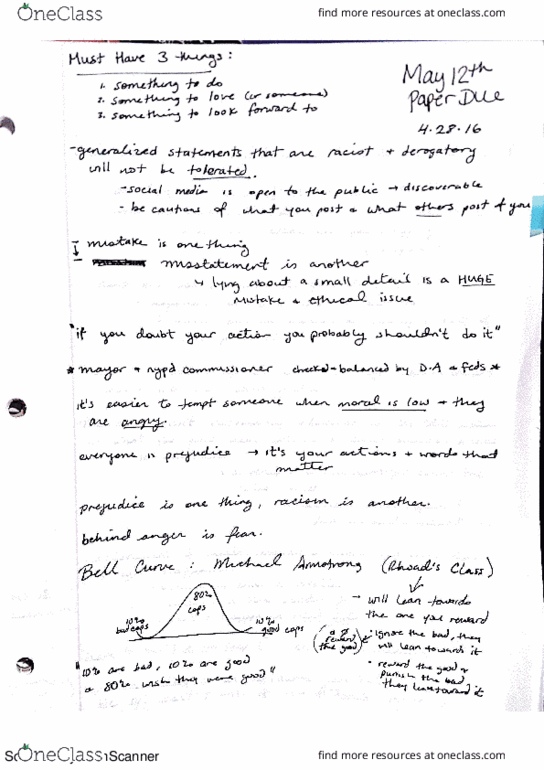 OneClass
find more resources at oneclass.com
Must Have 3 things:
1. something to do
2. something to love (or someone)
3. something to look forward to
May 12th
Paper Due
4.28.16
-generalized statements that are racist + derogatory
will not be tolerated.
-social media is open to the public → discoverable
- be cautious of what you post & what others post of you
mistake is one thing
misstatement is another
↳ lying about a small detail is a HUGE
mistake & ethical issue
"if you doubt your action you probably shouldn't do it"
* mayor + nypd commissioner checked + balanced by D.A & feds *
it's easier to tempt someone when moral is low + they
are angry.
everyone is prejudice → it's your actions + words that
matter
prejudice is one thing, racism is another.
behind anger is fear.
Bell Curve: Michael Armstrong (Rhoad's Class)
10%
bad cops
80%
cops
10%
good cops
→ will lean towards
the one you reward
reward
the good
ignore the bad, they
will lean towards it
• reward the good &
punish the bad
they lean toward it
"10% are bad, 10% are good
& 80% wish they were good"
OneClass
Scanner
find more resources at oneclass.com